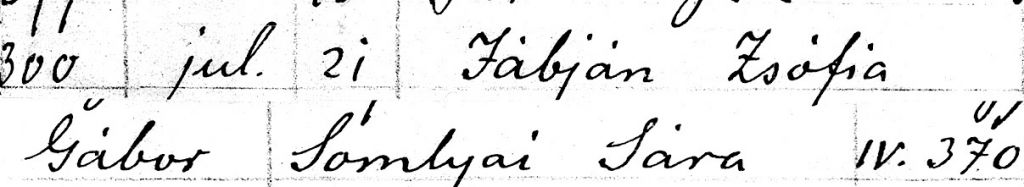 300 jul. 21 Fábján Zsófia
Gábor Somlyai Sára IV. 370